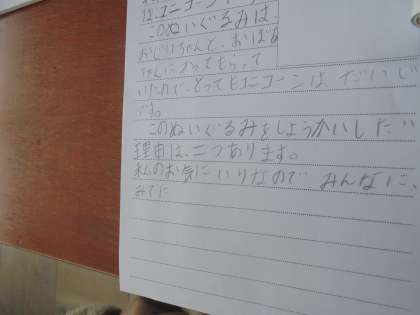 はユニコーン
このぬいぐるみは、
おじいちゃんと、おばあ
ちゃんにかってもらって
とってもユニコーンは だいじ
です。
このぬいぐるみをしょうかいしたい
理由は、二つあります。
私のお気にいりなので みんなに
みてに